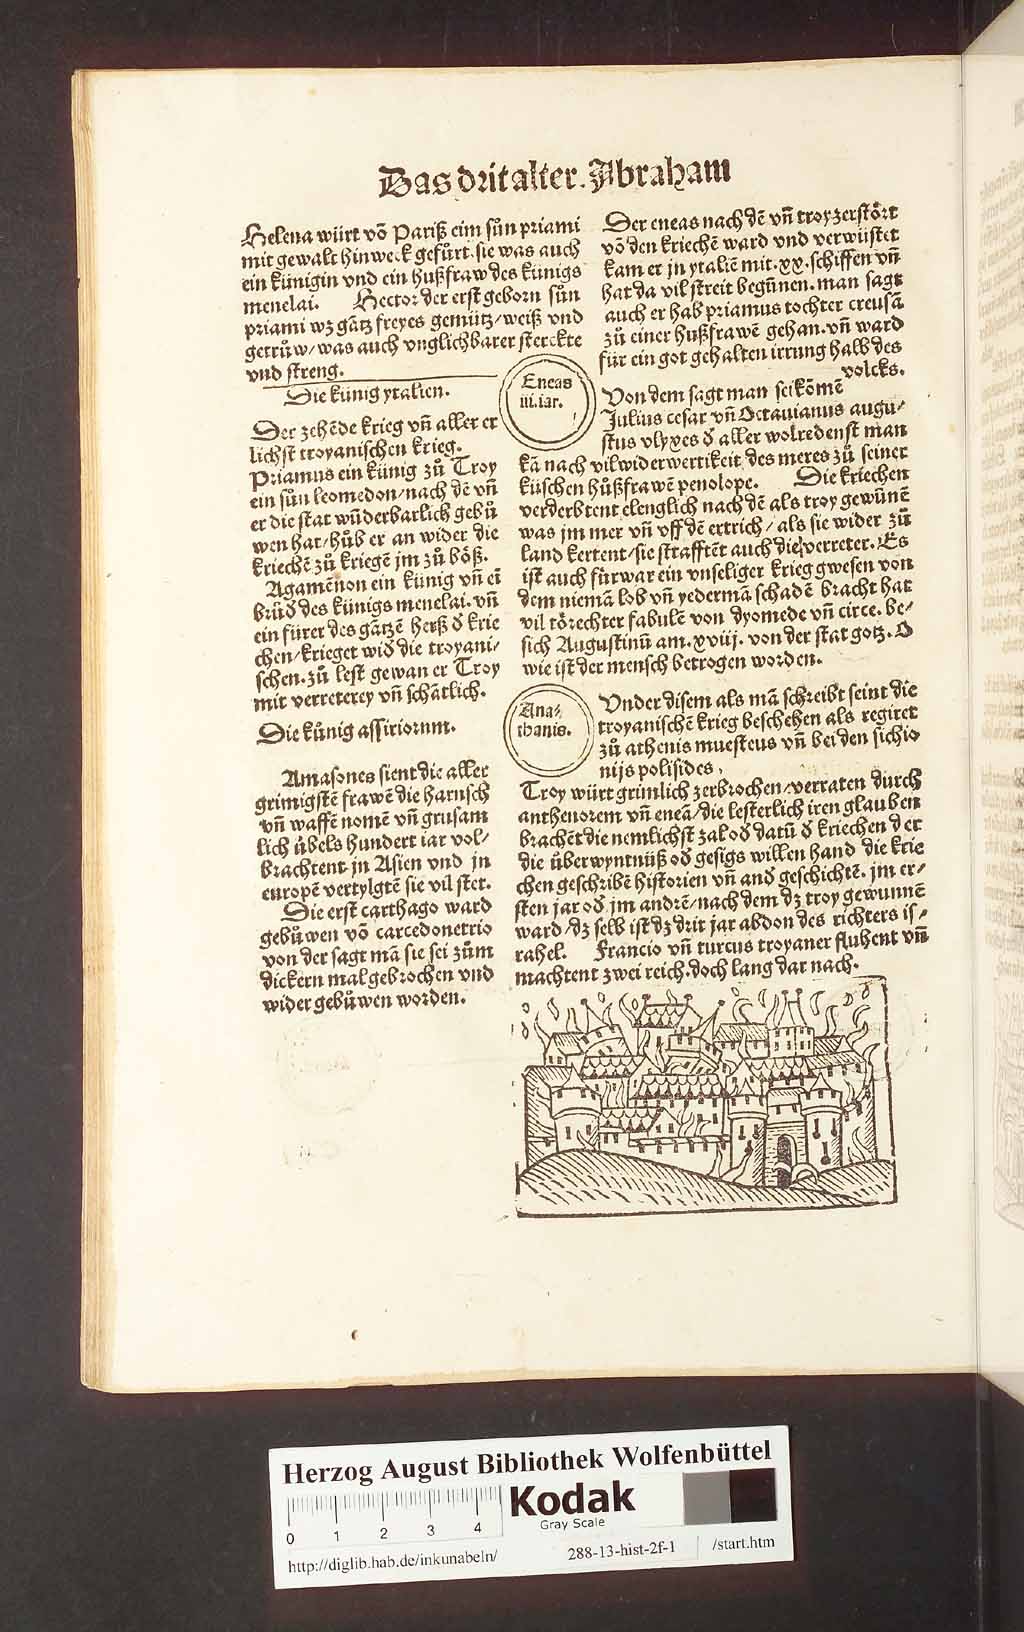 Das drit alter. Abraham
Helena würt võ Pariß eim sůn priami
mit gewalt hinweck gefůrt. sie was auch
ein künigin vnd ein hußfraw des künigs
menelai. Hector der erst geborn sůn
priami wz gãtz freyes gemütz/weiß vnd
getrůw/was auch vnglichbarer sterckte
vnd streng.
Die künig ytalien.
Der zehẽde krieg vñ aller er
lichst troyanischen krieg.
Priamus ein künig zů Troy
ein sůn leomedon/nach dẽ vñ
er die stat wũderbarlich gebů
wen hat/hůb er an wider die
kriechẽ zů kriegẽ jm zů bőß.
Agamẽnon ein künig vñ eĩ
brůd des künigs menelai. vñ
ein fürer des gãtzẽ herß d krie
chen/krieget wid die troyani/
schen. zů lest gewan er Troy
mit verreterey vñ schãtlich.
Die kůnig assiriorum.
Amasones sient die aller
grimigstẽ frawẽ die harnsch
vñ waffẽ nomẽ vñ grusam
lich übels hundert iar vol/
brachtent jn Asien vnd jn
europẽ vertylgtẽ sie vil stet.
Die erst carthago ward
gebůwen võ carcedonetrio
von der sagt mã sie sei zům
dickern mal gebrochen vnd
wider gebůwen worden.
Eneas
iii. iar.
Der eneas nach dẽ vñ troy zerstőrt
võ den kriechẽ ward vnd verwüstet
kam er jn ytaliẽ mit. xx. schiffen vñ
hat da vil streit begũnen. man sagt
auch er hab priamus tochter creusã
zů einer hußfrawẽ gehan. vñ ward
für ein got gehalten irrung halb des
volcks.
Von dem sagt man sei kõmẽ
Julius cesar vñ Octauianus augu/
stus vlyxes d aller wolredenst man
kã nach vil widerwertikeit des meres zů seiner
küschen hůßfrawẽ penolope. Die kriechen
verderbtent elenglich nach dẽ als troy gewũnẽ
was jm mer vñ vff dẽ ertrich/als sie wider zů
land kertent/sie strafftẽt auch die verreter. Es
ist auch fürwar ein vnseliger krieg gwesen von
dem niemã lob vñ yedermã schadẽ bracht hat
vil tőrechter fabulẽ von dyomede vñ circe. be/
sich Augustinũ am. xviij. von der stat gotz. O
wie ist der mensch betrogen worden.
Ana/
thanis.
Vnder disem als mã schreibt seint die
troyanischẽ krieg beschehen als regiret
zů athenis muesteus vñ bei den sichio
nijs polisides.
Troy würt grimlich zerbrochen/verraten durch
anthenorem vñ eneã/die lesterlich iren glauben
brachẽt die nemlichst zal od datũ d kriechen der
die überwyntnüß od gesigs willen hand die krie
chen geschribẽ historien vñ and geschichtẽ. jm er/
sten jar od jm andrẽ/nach dem dz troy gewunnẽ
ward/dz selb ist dz drit jar abdon des richters is/
rahel. Francio vñ turcus troyaner fluhent vñ
machtent zwei reich. doch lang dar nach.
Herzog August Bibliothek Wolfenbüttel
0 1 2 3 4
Kodak
Gray Scale
http://diglib.hab.de/inkunabeln/
288-13-hist-2f-1
/start.htm